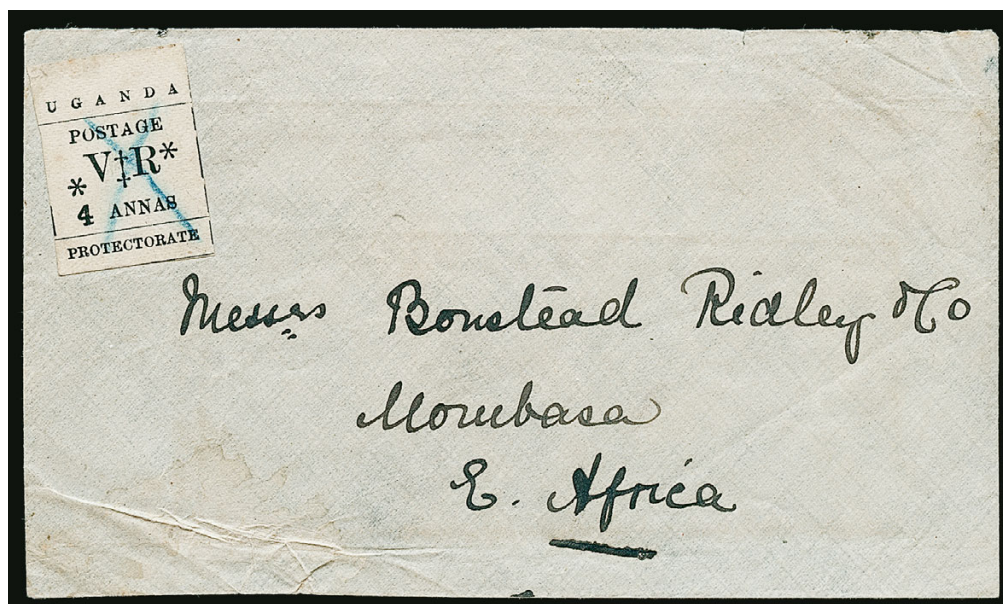 UGANDA
POSTAGE
*V‡R*
4 ANNAS
PROTECTORATE
Messrs Boustead Ridley & Co
Mombasa
E. Africa